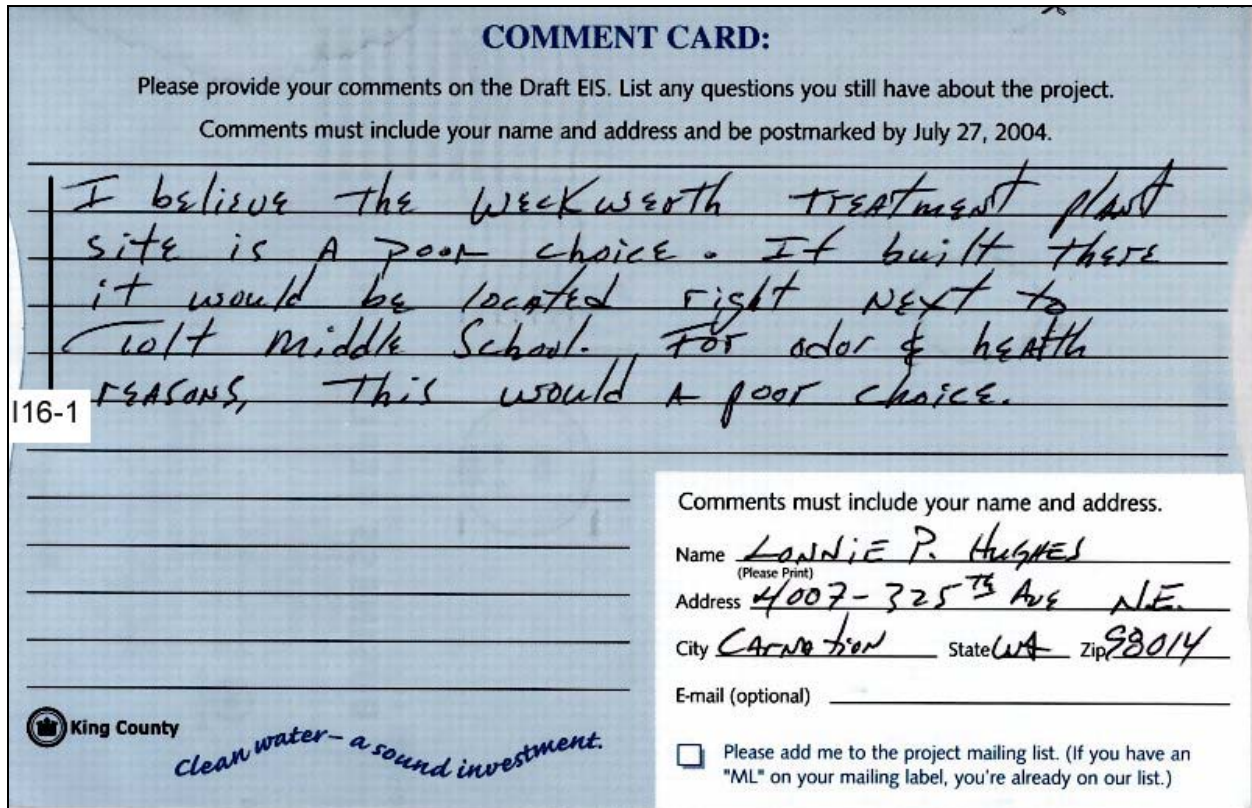 COMMENT CARD:
Please provide your comments on the Draft EIS. List any questions you still have about the project.
Comments must include your name and address and be postmarked by July 27, 2004.
I believe the Weckwerth Treatment plant
site is A poor choice. If built there
it would be located right Next to
Tolt Middle School. For odor & health
reasons, This would A poor choice.
I16-1
Comments must include your name and address.
Name Lonnie P. Hughes
(Please Print)
Address 4007-325th Ave N.E.
City Carnation State WA Zip 98014
E-mail (optional)
King County
Clean water – a sound investment.
Please add me to the project mailing list. (If you have an
"ML" on your mailing label, you're already on our list.)